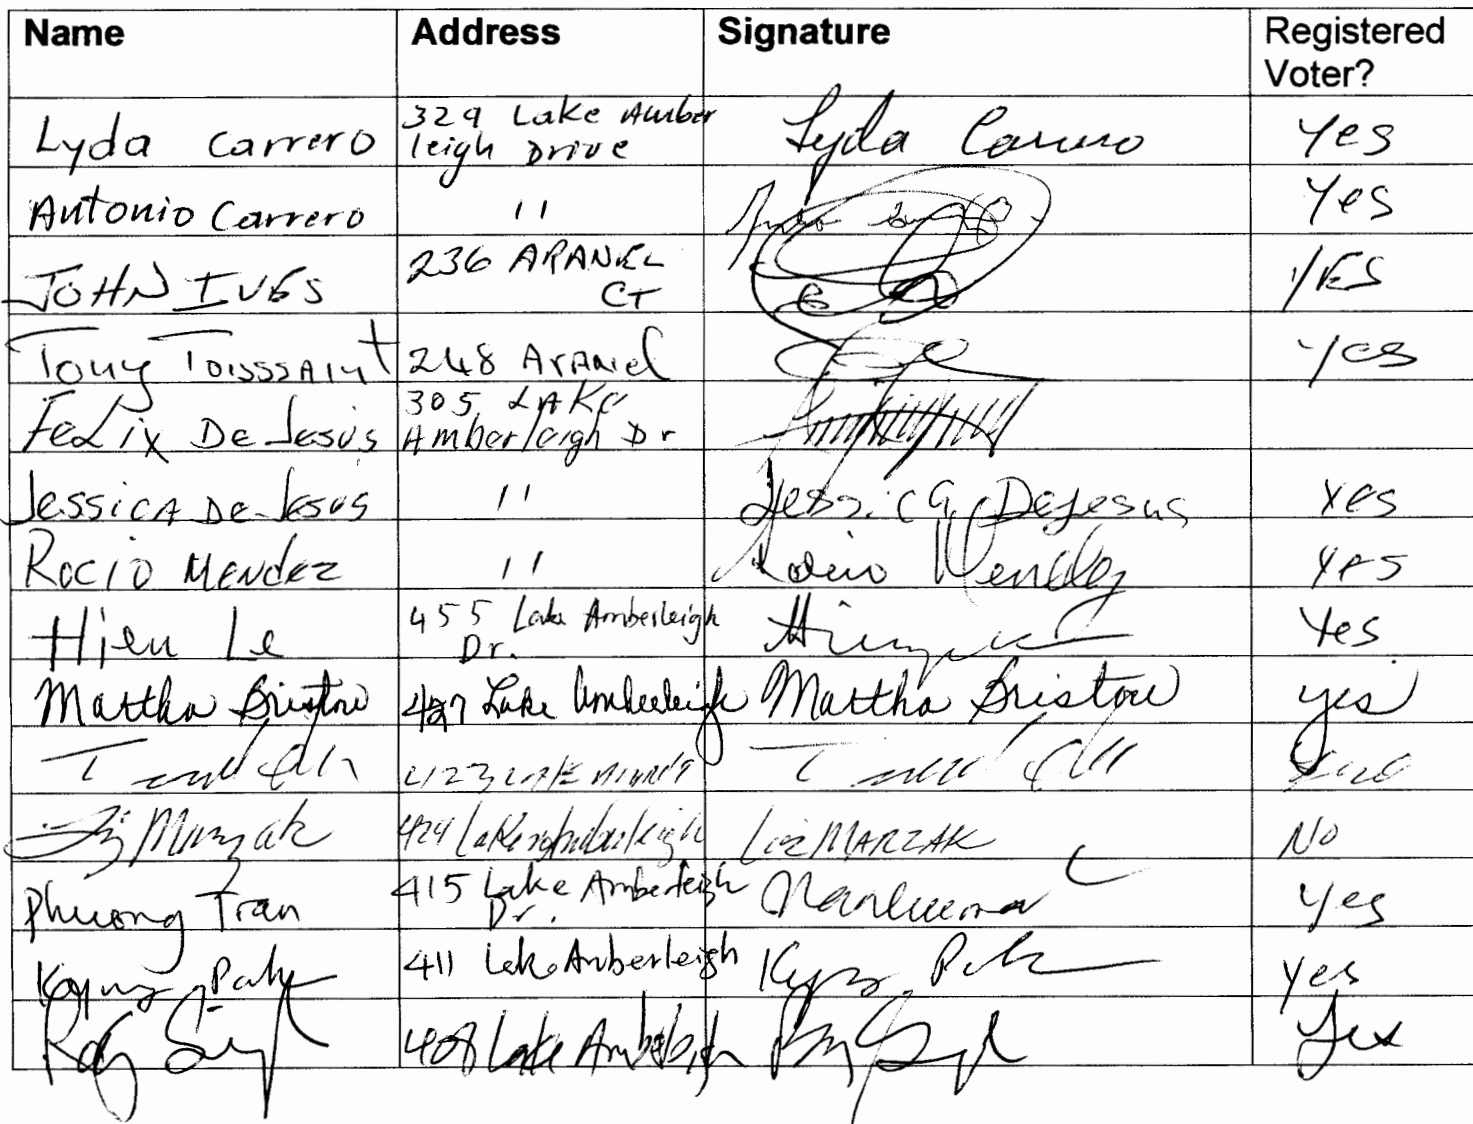 Name Address Signature Registered Voter?
Lyda Carrero 329 Lake Amber leigh Drive Lyda Carrero Yes
Antonio Carrero " Yes
JOHN IVES 236 ARANEL CT YES
Tony Toisssaint 248 Aranel Yes
Felix De Jesus 305 LAKE Amberleigh Dr
Jessica De Jesus " Jessica DeJesus Yes
Rocio Mendez " Rocio Mendez Yes
Hien Le 455 Lake Amberleigh Dr. Yes
Martha Bristow Lake Amberleigh Martha Bristow yes
Liz Marzak 424 Lake Amberleigh Liz MARZAK No
Phuong Tran 415 Lake Amberleigh Dr. Yes
411 Lake Amberleigh Yes
Lake Amberleigh Yes